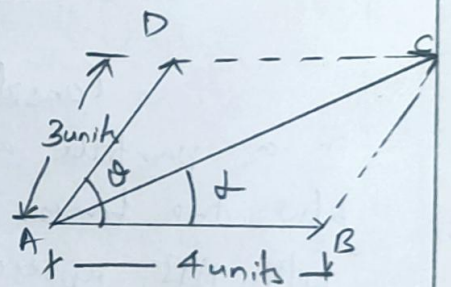 D
C
3units
θ
α
A
B
4 units